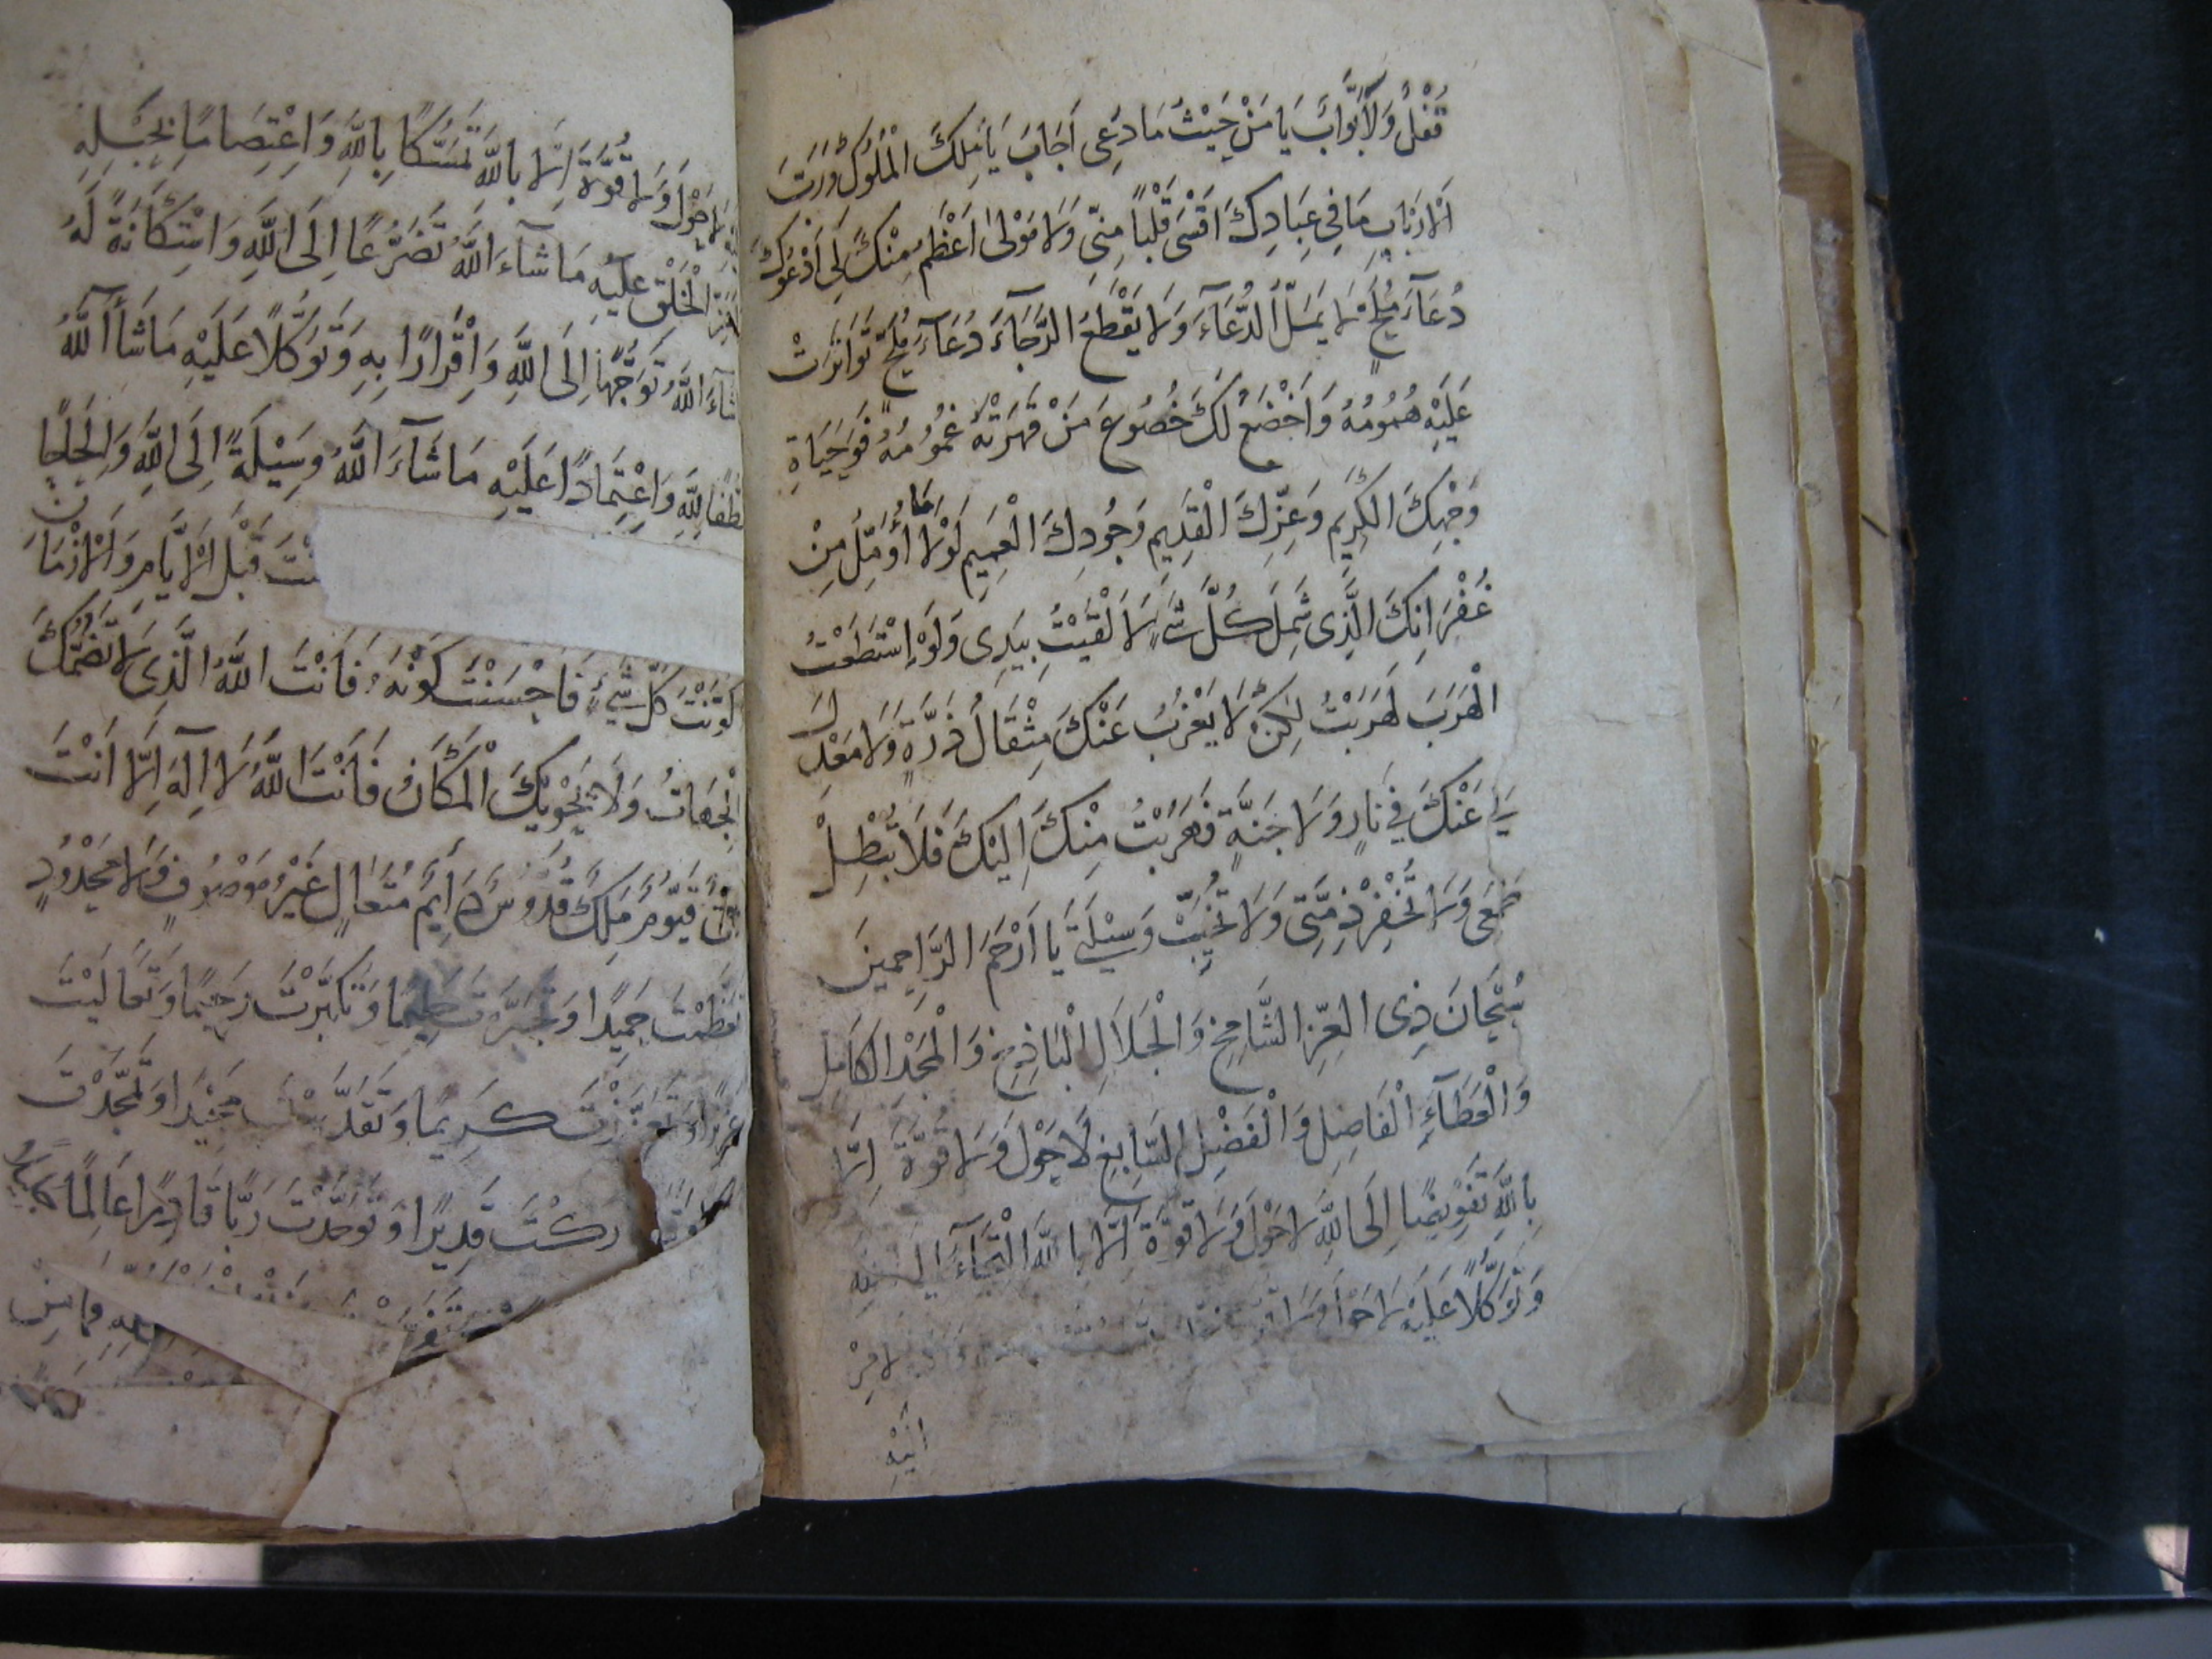 قُفْلٌ وَلَا بَوَّابٌ يَا مَنْ حَيْثُ مَا دُعِي اَجَابَ يَا مَلِكَ الْمُلُوكِ وَرَبَّ
الْاَرْبَابِ مَا فِي عِبَادِكَ اَقْسٰى قَلْبًا مِنِّي وَلَا مَوْلٰى اَعْظَمُ مِنْكَ لِي اَدْعُوكَ
دُعَآءَ مُلِحٍّ لَا يَمَلُّ الدُّعَآءَ وَلَا يَقْطَعُ الرَّجَآءَ دُعَآءَ مُلِحٍّ تَوَاتَرَتْ
عَلَيْهِ هُمُومُهُ وَاَخْضَعُ لَكَ خُضُوعَ مَنْ قَهَرَتْهُ غُمُومُهُ فَوَحَيَاةِ
وَجْهِكَ الْكَرِيمِ وَعِزِّكَ الْقَدِيمِ وَجُودِكَ الْعَمِيمِ لَوْلَا مَا اُؤَمِّلُ مِنْ
غُفْرَانِكَ الَّذِي شَمِلَ كُلَّ شَيْءٍ لَاَلْقَيْتُ بِيَدِي وَلَوْ اِسْتَطَعْتُ
الْهَرَبَ لَهَرَبْتُ لٰكِنْ لَا يَعْزُبُ عَنْكَ مِثْقَالُ ذَرَّةٍ وَلَا مَعْدِلَ
لِي عَنْكَ فِي نَارٍ وَلَا جَنَّةٍ فَهَرَبْتُ مِنْكَ اِلَيْكَ فَلَا تُبْطِلْ
طَمَعِي وَلَا تُخْفِرْ ذِمَّتِي وَلَا تُخَيِّبْ وَسِيْلَتِي يَا اَرْحَمَ الرَّاحِمِينَ
سُبْحَانَ ذِي الْعِزِّ الشَّامِخِ وَالْجَلَالِ الْبَاذِخِ وَالْمَجْدِ الْكَامِلِ
وَالْعَطَآءِ الْفَاضِلِ وَالْفَضْلِ السَّابِغِ لَا حَوْلَ وَلَا قُوَّةَ اِلَّا
بِاللّٰهِ تَفْوِيضًا اِلَى اللّٰهِ لَا حَوْلَ وَلَا قُوَّةَ اِلَّا بِاللّٰهِ الْتِجَآءً اِلَيْهِ
وَتَوَكُّلًا عَلَيْهِ لَا حَوْلَ وَلَا
لَا حَوْلَ وَلَا قُوَّةَ اِلَّا بِاللّٰهِ تَمَسُّكًا بِاللّٰهِ وَاِعْتِصَامًا بِحَبْلِهِ
الْخَلْقِ عَلَيْهِ مَا شَآءَ اللّٰهُ تَضَرُّعًا اِلَى اللّٰهِ وَاسْتِكَانَةً لَهُ
شَآءَ اللّٰهُ تَوَجُّهًا اِلَى اللّٰهِ وَاِقْرَارًا بِهِ وَتَوَكُّلًا عَلَيْهِ مَا شَآءَ اللّٰهُ
تَلَطُّفًا لِلّٰهِ وَاِعْتِمَادًا عَلَيْهِ مَا شَآءَ اللّٰهُ وَسِيْلَةً اِلَى اللّٰهِ وَاِلْحَاحًا
قَبْلَ الْاَيَّامِ وَالْاَزْمَانِ
كَوَّنْتَ كُلَّ شَيْءٍ فَاَحْسَنْتَ كَوْنَهُ فَاَنْتَ اللّٰهُ الَّذِي لَا تَضُمُّكَ
الْجِهَاتُ وَلَا يَحْوِيْكَ الْمَكَانُ فَاَنْتَ اللّٰهُ لَا اِلٰهَ اِلَّا اَنْتَ
قَيُّومٌ مَلِكٌ قُدُّوسٌ دَايِمٌ مُتَعَالٍ غَيْرُ مَوْصُوفٍ وَلَا مَحْدُودٍ
تَعَظَّمْتَ حَمِيْدًا وَتَجَبَّرْتَ حَلِيْمًا وَتَكَبَّرْتَ رَحِيْمًا وَتَعَالَيْتَ
عَزِيزًا وَتَعَزَّزْتَ كَرِيمًا وَتَقَدَّسْتَ مَجِيْدًا وَتَمَجَّدْتَ
قَدِيرًا وَتَوَحَّدْتَ رَبًّا قَادِرًا عَالِمًا